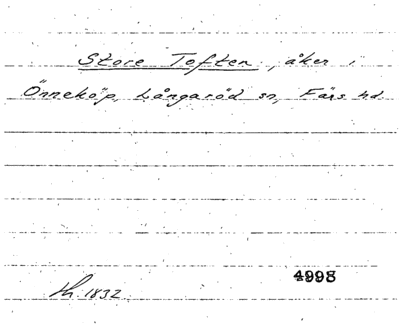 Store Toften, åker i
Önneköp, Långaröd sn, Färs hd.
4998
1832